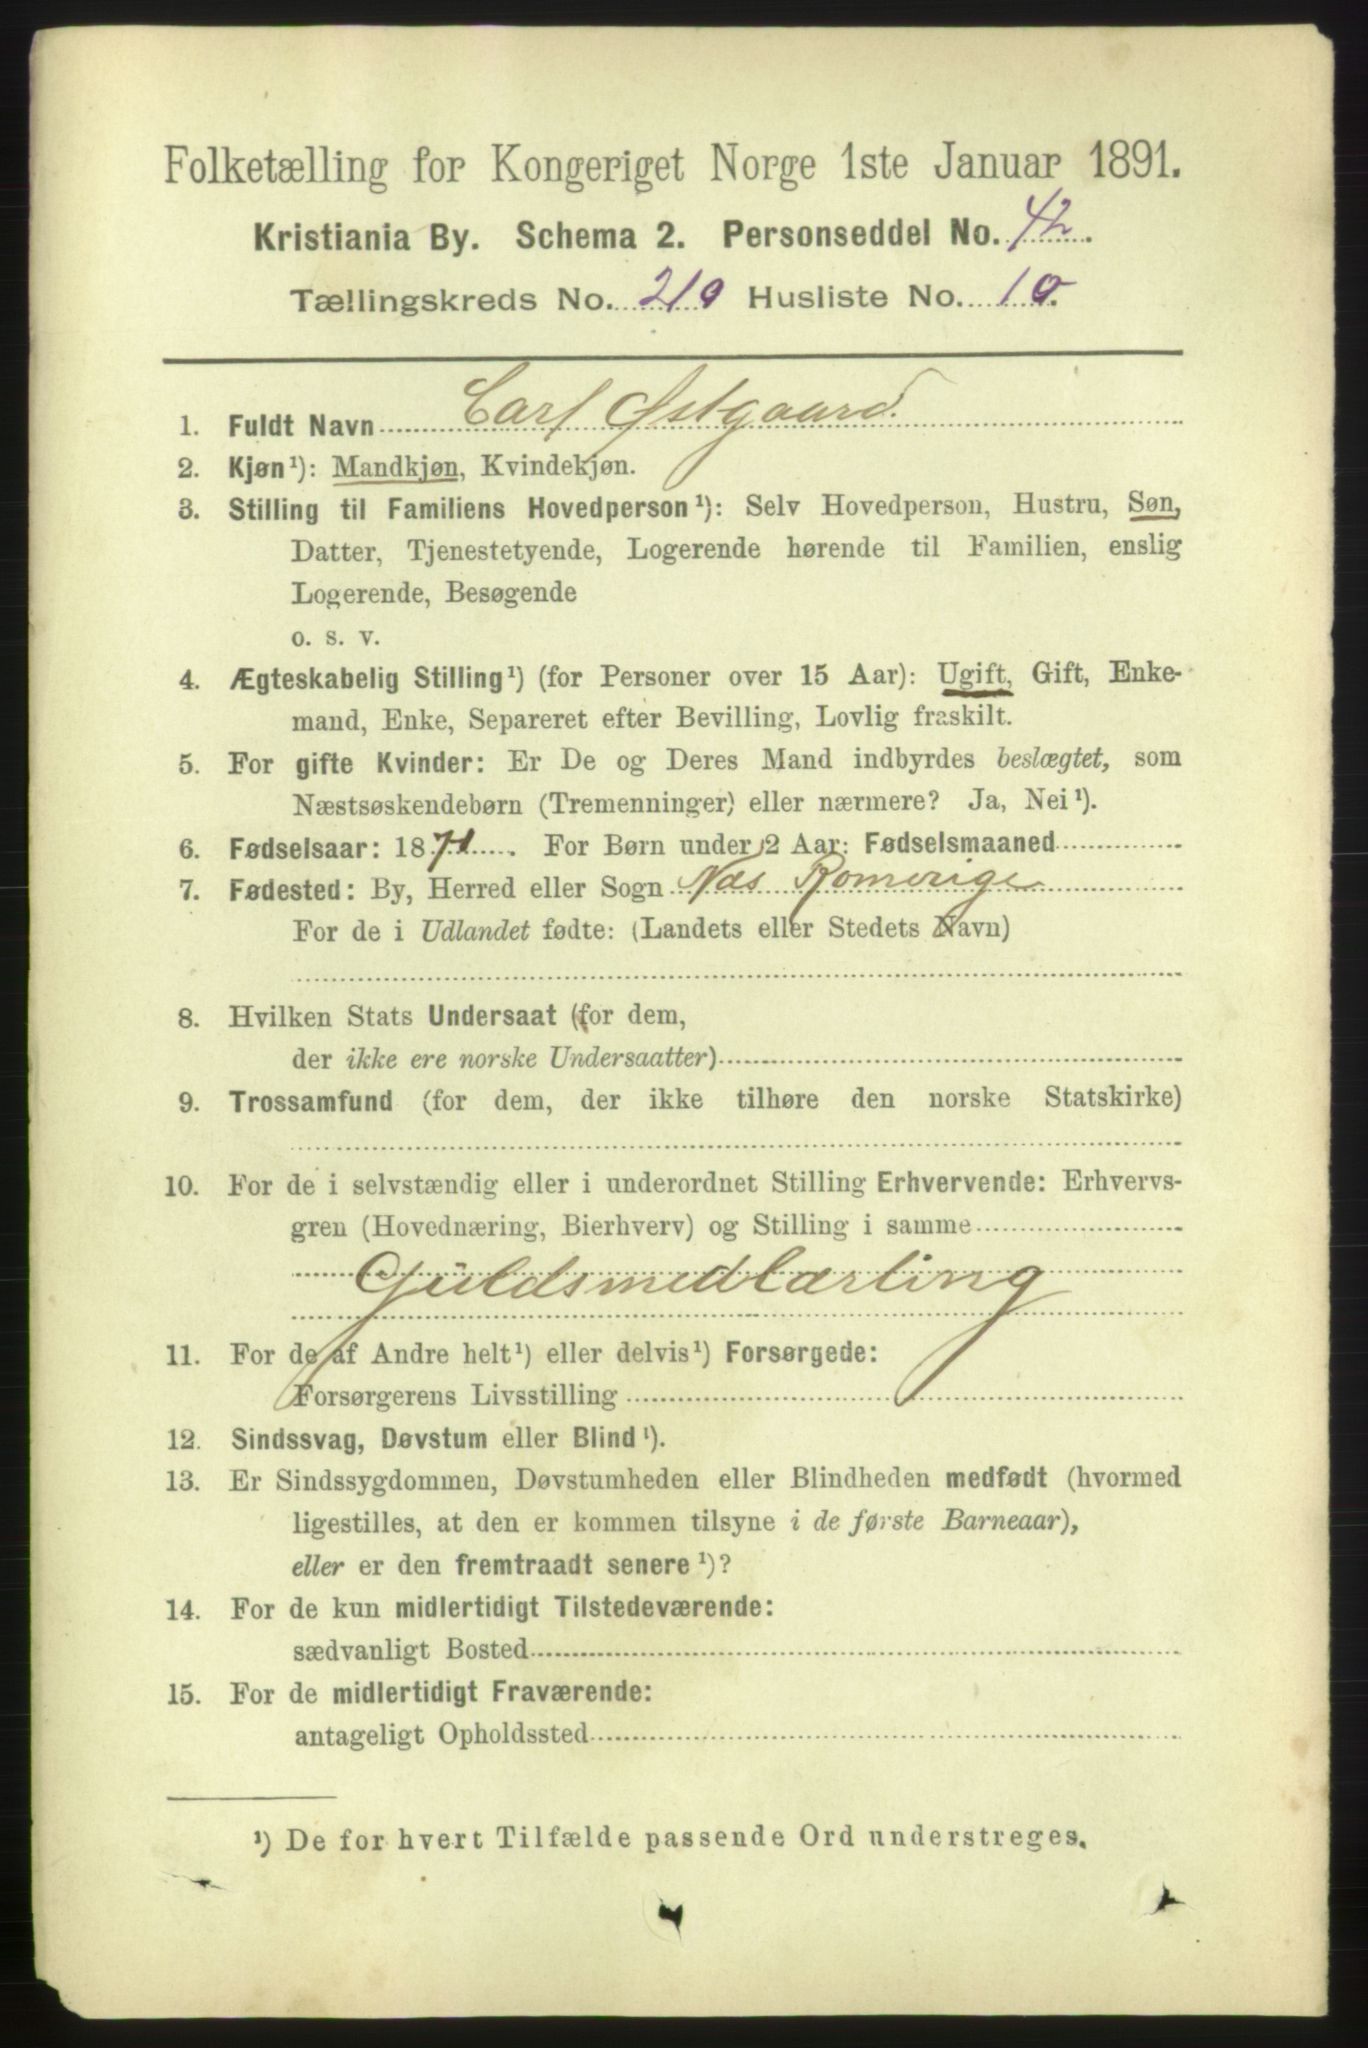 Folketælling for Kongeriget Norge 1ste Januar 1891.
Kristiania By. Schema 2. Personseddel No. 42.
Tællingskreds No. 210 Husliste No. 10.
1. Fuldt Navn Carl Østgaard.
2. Kjøn¹): Mandkjøn, Kvindekjøn.
3. Stilling til Familiens Hovedperson¹): Selv Hovedperson, Hustru, Søn,
Datter, Tjenestetyende, Logerende hørende til Familien, enslig
Logerende, Besøgende
o. s. v.
4. Ægteskabelig Stilling¹) (for Personer over 15 Aar): Ugift, Gift, Enke-
mand, Enke, Separeret efter Bevilling, Lovlig fraskilt.
5. For gifte Kvinder: Er De og Deres Mand indbyrdes beslægtet, som
Næstsøskendebørn (Tremenninger) eller nærmere? Ja, Nei¹).
6. Fødselsaar: 1871. For Børn under 2 Aar: Fødselsmaaned
7. Fødested: By, Herred eller Sogn Næs Romerige
For de i Udlandet fødte: (Landets eller Stedets Navn)
8. Hvilken Stats Undersaat (for dem,
der ikke ere norske Undersaatter)
9. Trossamfund (for dem, der ikke tilhøre den norske Statskirke)
10. For de i selvstændig eller i underordnet Stilling Erhvervende: Erhvervs-
gren (Hovednæring, Bierhverv) og Stilling i samme
Guldsmedlærling
11. For de af Andre helt¹) eller delvis¹) Forsørgede:
Forsørgerens Livsstilling
12. Sindssvag, Døvstum eller Blind¹).
13. Er Sindssygdommen, Døvstumheden eller Blindheden medfødt (hvormed
ligestilles, at den er kommen tilsyne i de første Barneaar),
eller er den fremtraadt senere¹)?
14. For de kun midlertidigt Tilstedeværende:
sædvanligt Bosted
15. For de midlertidigt Fraværende:
antageligt Opholdssted
¹) De for hvert Tilfælde passende Ord understreges.